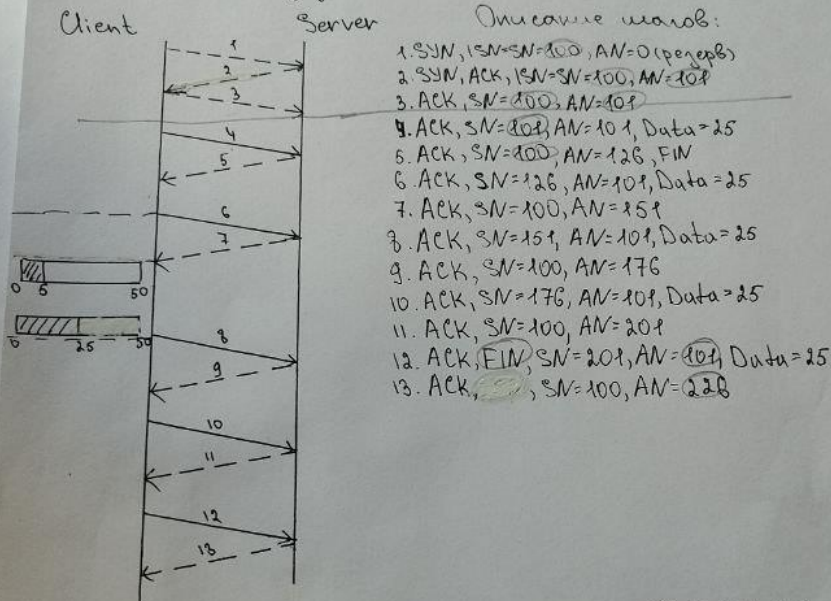 Client
Server
Описание шагов:
1. SYN, ISN=SN=100, AN=0(резерв)
2. SYN, ACK, ISN=SN=100, AN=101
3. ACK, SN=100, AN=101
4. ACK, SN=101, AN=101, Data=25
5. ACK, SN=100, AN=126, FIN
6. ACK, SN=126, AN=101, Data=25
7. ACK, SN=100, AN=151
8. ACK, SN=151, AN=101, Data=25
9. ACK, SN=100, AN=176
10. ACK, SN=176, AN=101, Data=25
11. ACK, SN=100, AN=201
12. ACK, FIN, SN=201, AN=101, Data=25
13. ACK, , SN=100, AN=226
1
2
3
4
5
6
7
0 5 50
0 25 50
8
9
10
11
12
13